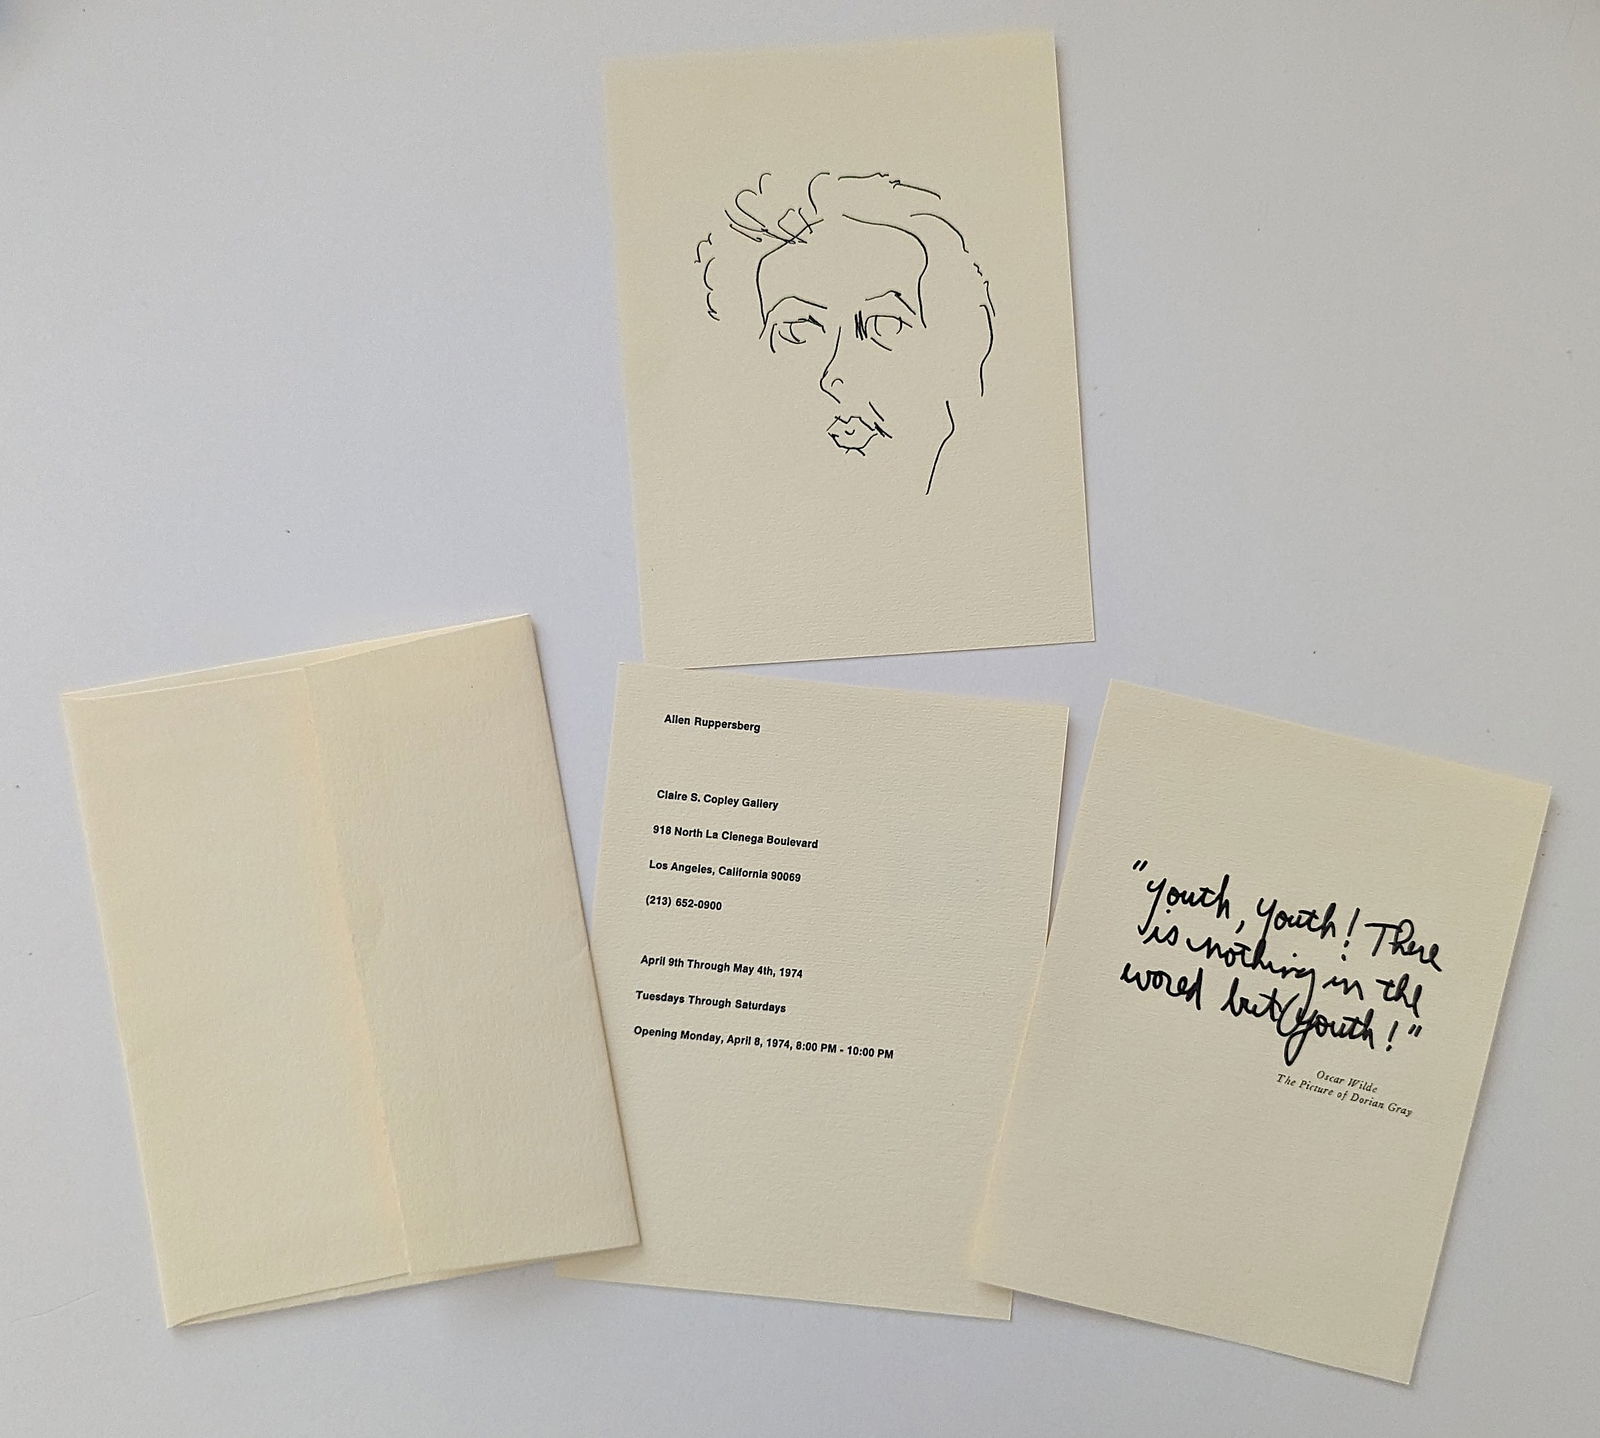 Allen Ruppersberg
Claire S. Copley Gallery
918 North La Cienega Boulevard
Los Angeles, California 90069
(213) 652-0900
April 9th Through May 4th, 1974
Tuesdays Through Saturdays
Opening Monday, April 8, 1974, 8:00 PM - 10:00 PM
"Youth, Youth! There
is nothing in the
world but youth!"
Oscar Wilde
The Picture of Dorian Gray